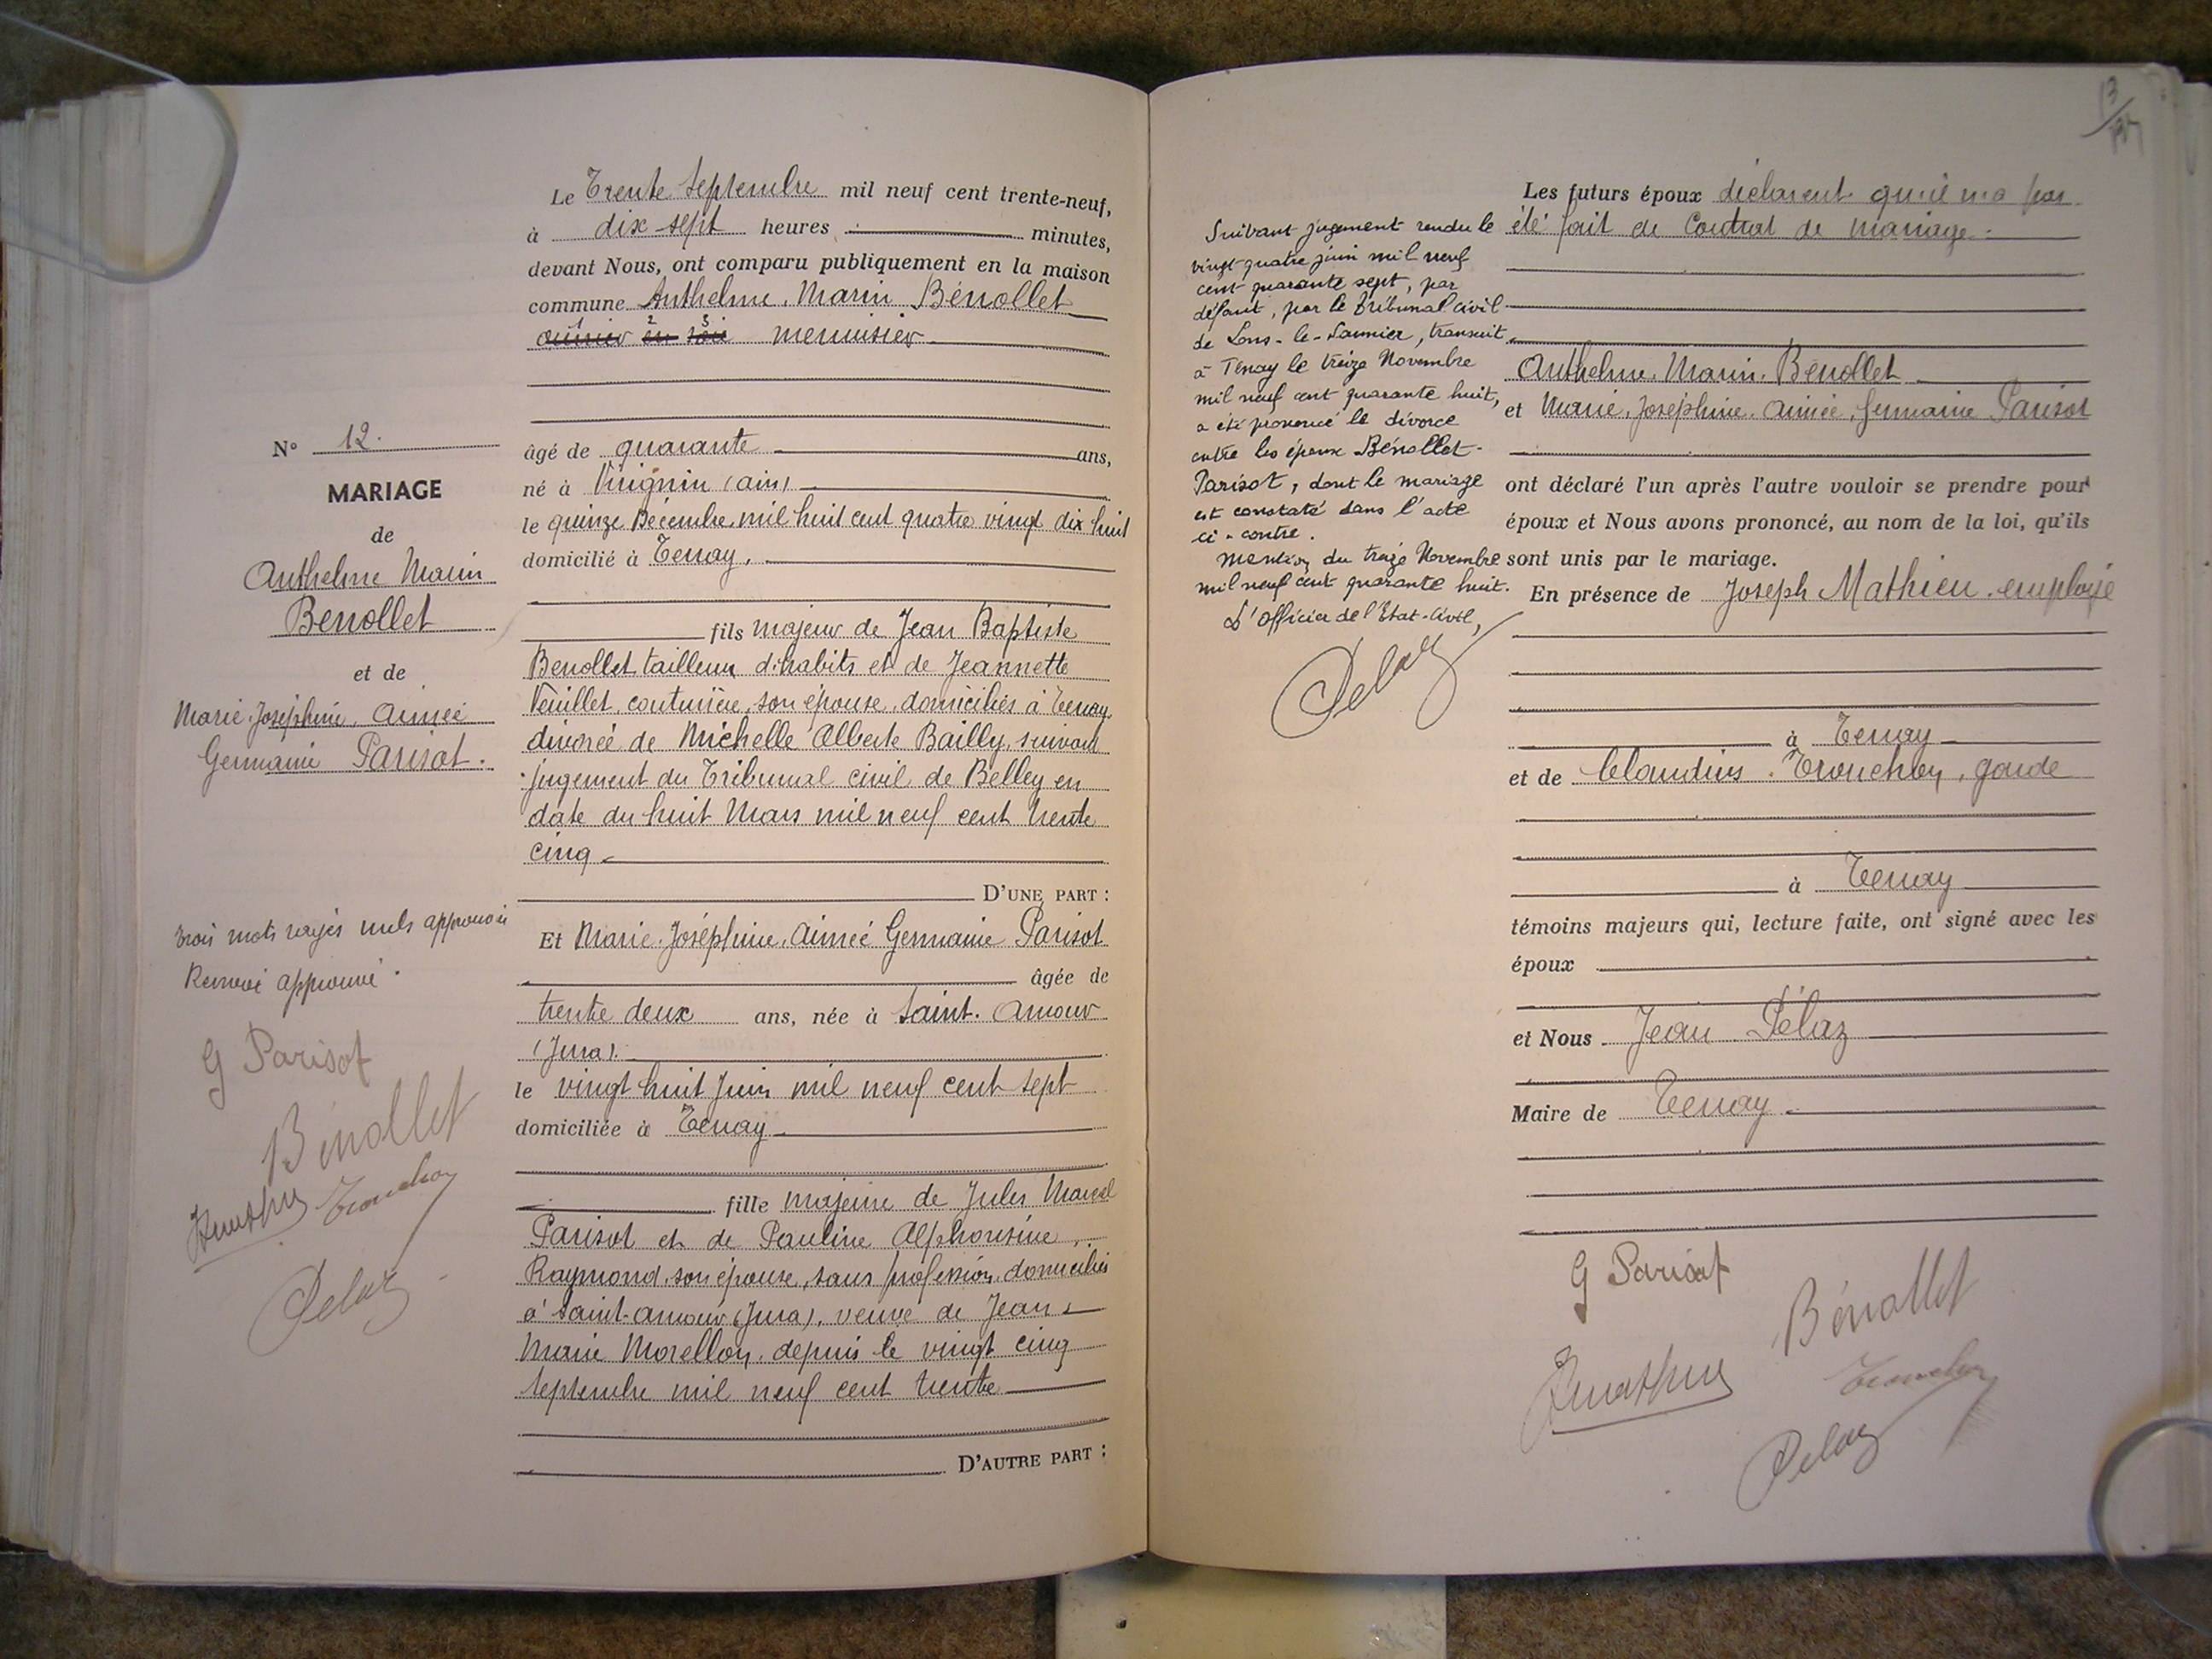 Le Trente Septembre mil neuf cent trente-neuf,
à dix-sept heures minutes,
devant Nous, ont comparu publiquement en la maison
commune Anthelme, Marin Bénollet
1 2 3
menuisier
N° 12.
MARIAGE
de
Anthelme Marin
Benollet
et de
Marie-Joséphine, Aimée
Germaine Parisot.
âgé de quarante ans,
né à Virignin (ain)
le quinze Décembre mil huit cent quatre vingt dix huit
domicilié à Tenay,
fils majeur de Jean Baptiste
Benollet tailleur d'habits et de Jeannette
Veuillet, couturière, son épouse, domiciliés à Tenay,
divorcé de Michelle Alberte Bailly, suivant
jugement du Tribunal civil de Belley en
date du huit Mars mil neuf cent trente
cinq
D'UNE PART :
Et Marie-Joséphine, Aimée Germaine Parisot
âgée de
trente deux ans, née à Saint-Amour
(Jura).
le vingt huit Juin mil neuf cent sept
domiciliée à Tenay
fille majeure de Jules Marcel
Parisot et de Pauline Alphonsine,
Raymond, son épouse, sans profession, domiciliés
à Saint-amour (Jura), veuve de Jean
Marie Morellon, depuis le vingt cinq
Septembre mil neuf cent trente
D'AUTRE PART :
trois mots rayés nuls approuvés
Renvoi approuvé.
G Parisot
Bénollet
Tronchon
Pelaz
13
Suivant jugement rendu le
vingt-quatre juin mil neuf
cent quarante sept, par
défaut, par le Tribunal civil
de Lons-le-Saunier, transcrit
à Tenay le treize Novembre
mil neuf cent quarante huit,
a été prononcé le divorce
entre les époux Bénollet-
Parisot, dont le mariage
est constaté dans l'acte
ci-contre.
Mention du treize Novembre
mil neuf cent quarante huit.
L'Officier de l'Etat-Civil,
Pelaz
Les futurs époux déclarent qu'il n'a pas
été fait de Contrat de mariage.
Anthelme, Marin, Bénollet
et Marie, Joséphine, Aimée, Germaine Parisot
ont déclaré l'un après l'autre vouloir se prendre pour
époux et Nous avons prononcé, au nom de la loi, qu'ils
sont unis par le mariage.
En présence de Joseph Mathieu, employé
à Tenay
et de Claudius Tronchon, garde
à Tenay
témoins majeurs qui, lecture faite, ont signé avec les
époux
et Nous Jean Pélaz
Maire de Tenay
G Parisot
Bénollet
Tronchon
Pelaz